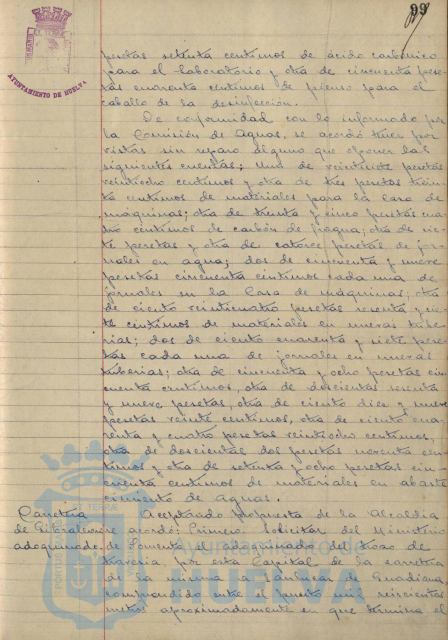 99
AYUNTAMIENTO DE HUELVA
pesetas setenta centimos de ácido carbónico
para el laboratorio y otra de cincuenta pese
tas cuarenta centimos de pienso para el
caballo de la desinfección.
De conformidad con lo informado por
la Comisión de Aguas, se acordó tener por
vistas sin reparo alguno que oponer las
siguientes cuentas; Una de veintisiete pesetas
veintiocho centimos y otra de tres pesetas trein
ta centimos de materiales para la casa de
máquinas; otra de treinta y cinco pesetas cua
centimos de carbón de fragua; otra de sie
te pesetas y otra de catorce pesetas de jor
nales en agua; dos de cincuenta y nueve
pesetas cincuenta centimos cada una de
jornales en la Casa de máquinas; otra
de ciento veinticuatro pesetas sesenta y
centimos de materiales en nuevas tube
rias; dos de ciento cuarenta y siete pese
tas cada una de jornales en nuevas
tuberias; otra de cincuenta y ocho pesetas cin
cuenta centimos, otra de doscientas sesenta
y nueve pesetas, otra de ciento diez y nueve
pesetas veinte centimos, otra de ciento cua
renta y cuatro pesetas veintiocho centimos,
otra de doscientas dos pesetas noventa cen
timos y otra de setenta y ocho pesetas cin
cuenta centimos de materiales en abaste
cimiento de aguas.
Carretera Aceptando propuesta de la Alcaldia
de Gibraleon se acordó: Primero. Solicitar del Ministerio
adoquinado. de Fomento el adoquinado del trozo de
travesia, por esta Capital de la carretera
de la misma a Sanlucar de Guadiana,
comprendido entre el punto mil seiscientos
metros aproximadamente en que termina el
Ayuntamiento de
HUELVA